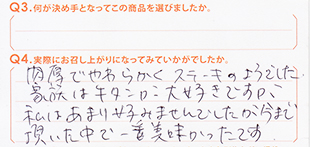 Q3.何が決め手となってこの商品を選びましたか。
Q4.実際にお召し上がりになってみていかがでしたか。
肉厚でやわらかく ステーキのようでした
家族は牛タンが大好きですが、
私はあまり好みませんでしたが今まで
頂いた中で一番美味かったです